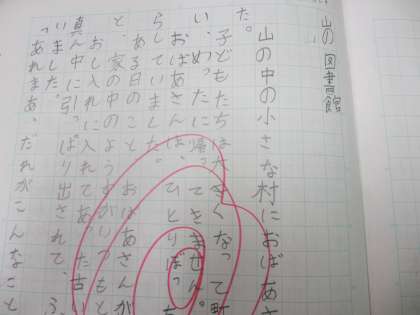 山の図書館
山の中の小さな村におばあさ
た。
子どもたちは大きくなって町
い、めったに帰ってきません。
おばあさんは、ひとりぼっち
らしていました。
ある日のこと、おばあさんが
と、家の中のようすがいつもと
おし入れに入れてあった古
真ん中に引っぱり出されて、ふ
いました。
「あれまあ、だれがこんなこと